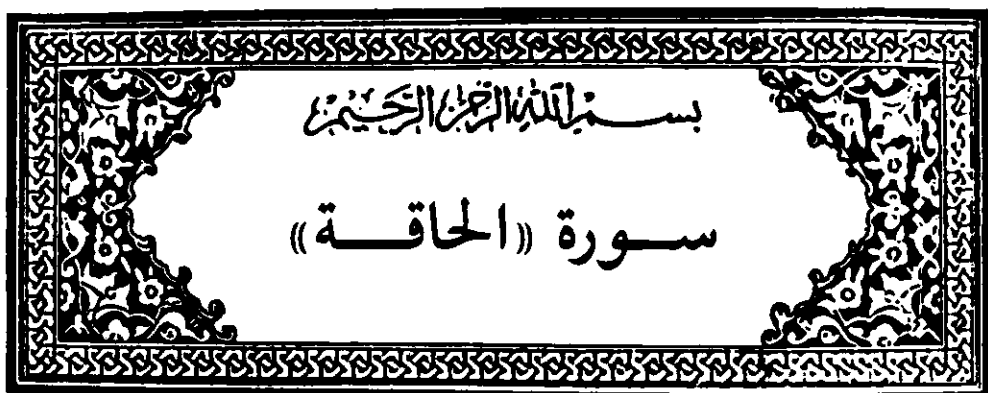 بسم الله الرحمن الرحيم
سورة ((الحاقة))